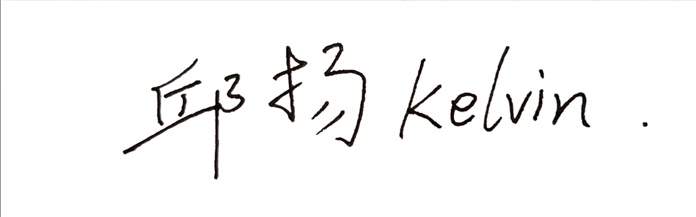 邱扬 Kelvin.